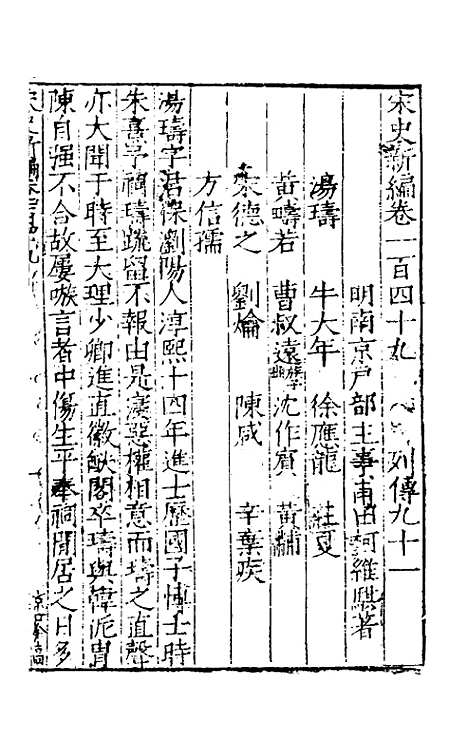 宋史新編卷一百四十九 列傳九十一
明南京戶部主事莆田柯維騏著
湯璹 牛大年 徐應龍 莊夏
黃疇若 曹叔遠 族子豳 沈作賓 黃黼
宋德之 劉爚 陳咸 辛棄疾
方信孺
湯璹字君保瀏陽人淳熙十四年進士歷國子博士時
朱熹予祠璹疏留不報由是
權相意而璹之直聲
亦大聞于時至大理少卿進直徽猷閣卒璹與韓侂冑
陳自強不合故屢嗾言者中傷生平奉祠閒居之日多